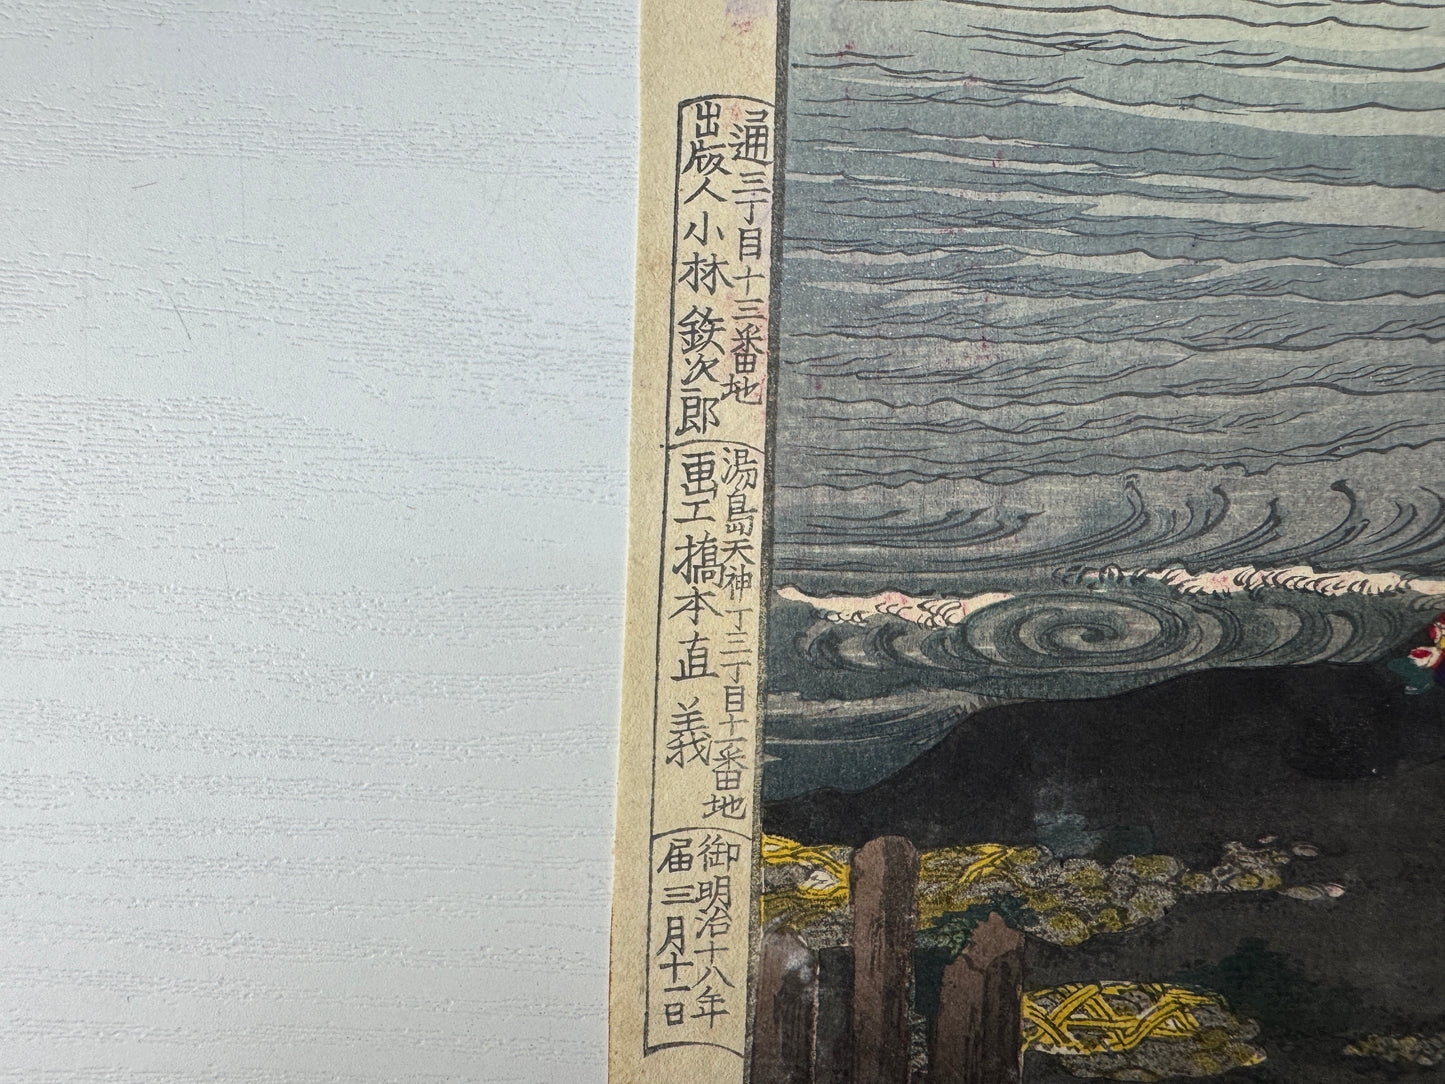 通三丁目十三番地
出版人小林鉄次郎
湯島天神丁三丁目十一番地
画工橋本直義
御明治十八年
届三月十一日